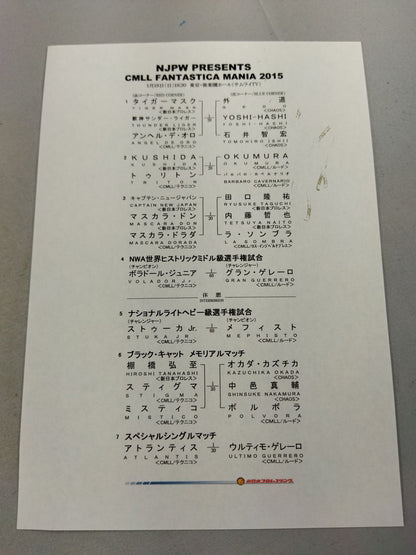 NJPW PRESENTS
CMLL FANTASTICA MANIA 2015
1月19日(月)18:30 東京・後楽園ホール(サムライTV)
(赤コーナー/RED CORNER) (青コーナー/BLUE CORNER)
1 タイガーマスク 外道
TIGER MASK GEDO
<新日本プロレス> <CHAOS>
獣神サンダー・ライガー 1/20 YOSHI-HASHI
THUNDER LIGER YOSHI-HASHI
<新日本プロレス> <CHAOS>
アンヘル・デ・オロ 石井智宏
ANGEL DE ORO TOMOHIRO ISHII
<CMLL/テクニコ> <CHAOS>
2 KUSHIDA OKUMURA
KUSHIDA OKUMURA
<新日本プロレス> <CMLL/ルード>
トリトン バルバロ・カベルナリオ
TRITON BARBARO CAVERNARIO
<CMLL/テクニコ> <CMLL/ルード>
3 キャプテン・ニュージャパン 田口隆祐
CAPTAIN NEW JAPAN RYUSUKE TAGUCHI
<新日本プロレス> <新日本プロレス>
マスカラ・ドン 1/30 内藤哲也
MASCARA DON TETSUYA NAITO
<新日本プロレス> <新日本プロレス>
マスカラ・ドラダ ラ・ソンブラ
MASCARA DORADA LA SOMBRA
<CMLL/テクニコ>
4 NWA世界ヒストリックミドル級選手権試合
(チャンピオン) (チャレンジャー)
ボラドール・ジュニア 1/60 グラン・ゲレーロ
VOLADOR Jr. GRAN GUERRERO
<CMLL/テクニコ> <CMLL/ルード>
休憩
INTERMISSION
5 ナショナルライトヘビー級選手権試合
(チャレンジャー) (チャンピオン)
ストゥーカJr. 1/60 メフィスト
STUKA JR. MEPHISTO
<CMLL/テクニコ> <CMLL/ルード>
6 ブラック・キャット メモリアルマッチ
棚橋弘至 オカダ・カズチカ
HIROSHI TANAHASHI KAZUCHIKA OKADA
<新日本プロレス> <CHAOS>
スティグマ 1/30 中邑真輔
STIGMA SHINSUKE NAKAMURA
<CMLL/テクニコ> <CHAOS>
ミスティコ ポルボラ
MISTICO POLVORA
<CMLL/テクニコ> <CMLL/ルード>
7 スペシャルシングルマッチ
アトランティス 1/30 ウルティモ・ゲレーロ
ATLANTIS ULTIMO GUERRERO
<CMLL/テクニコ> <CMLL/ルード>
新日本プロレスリング